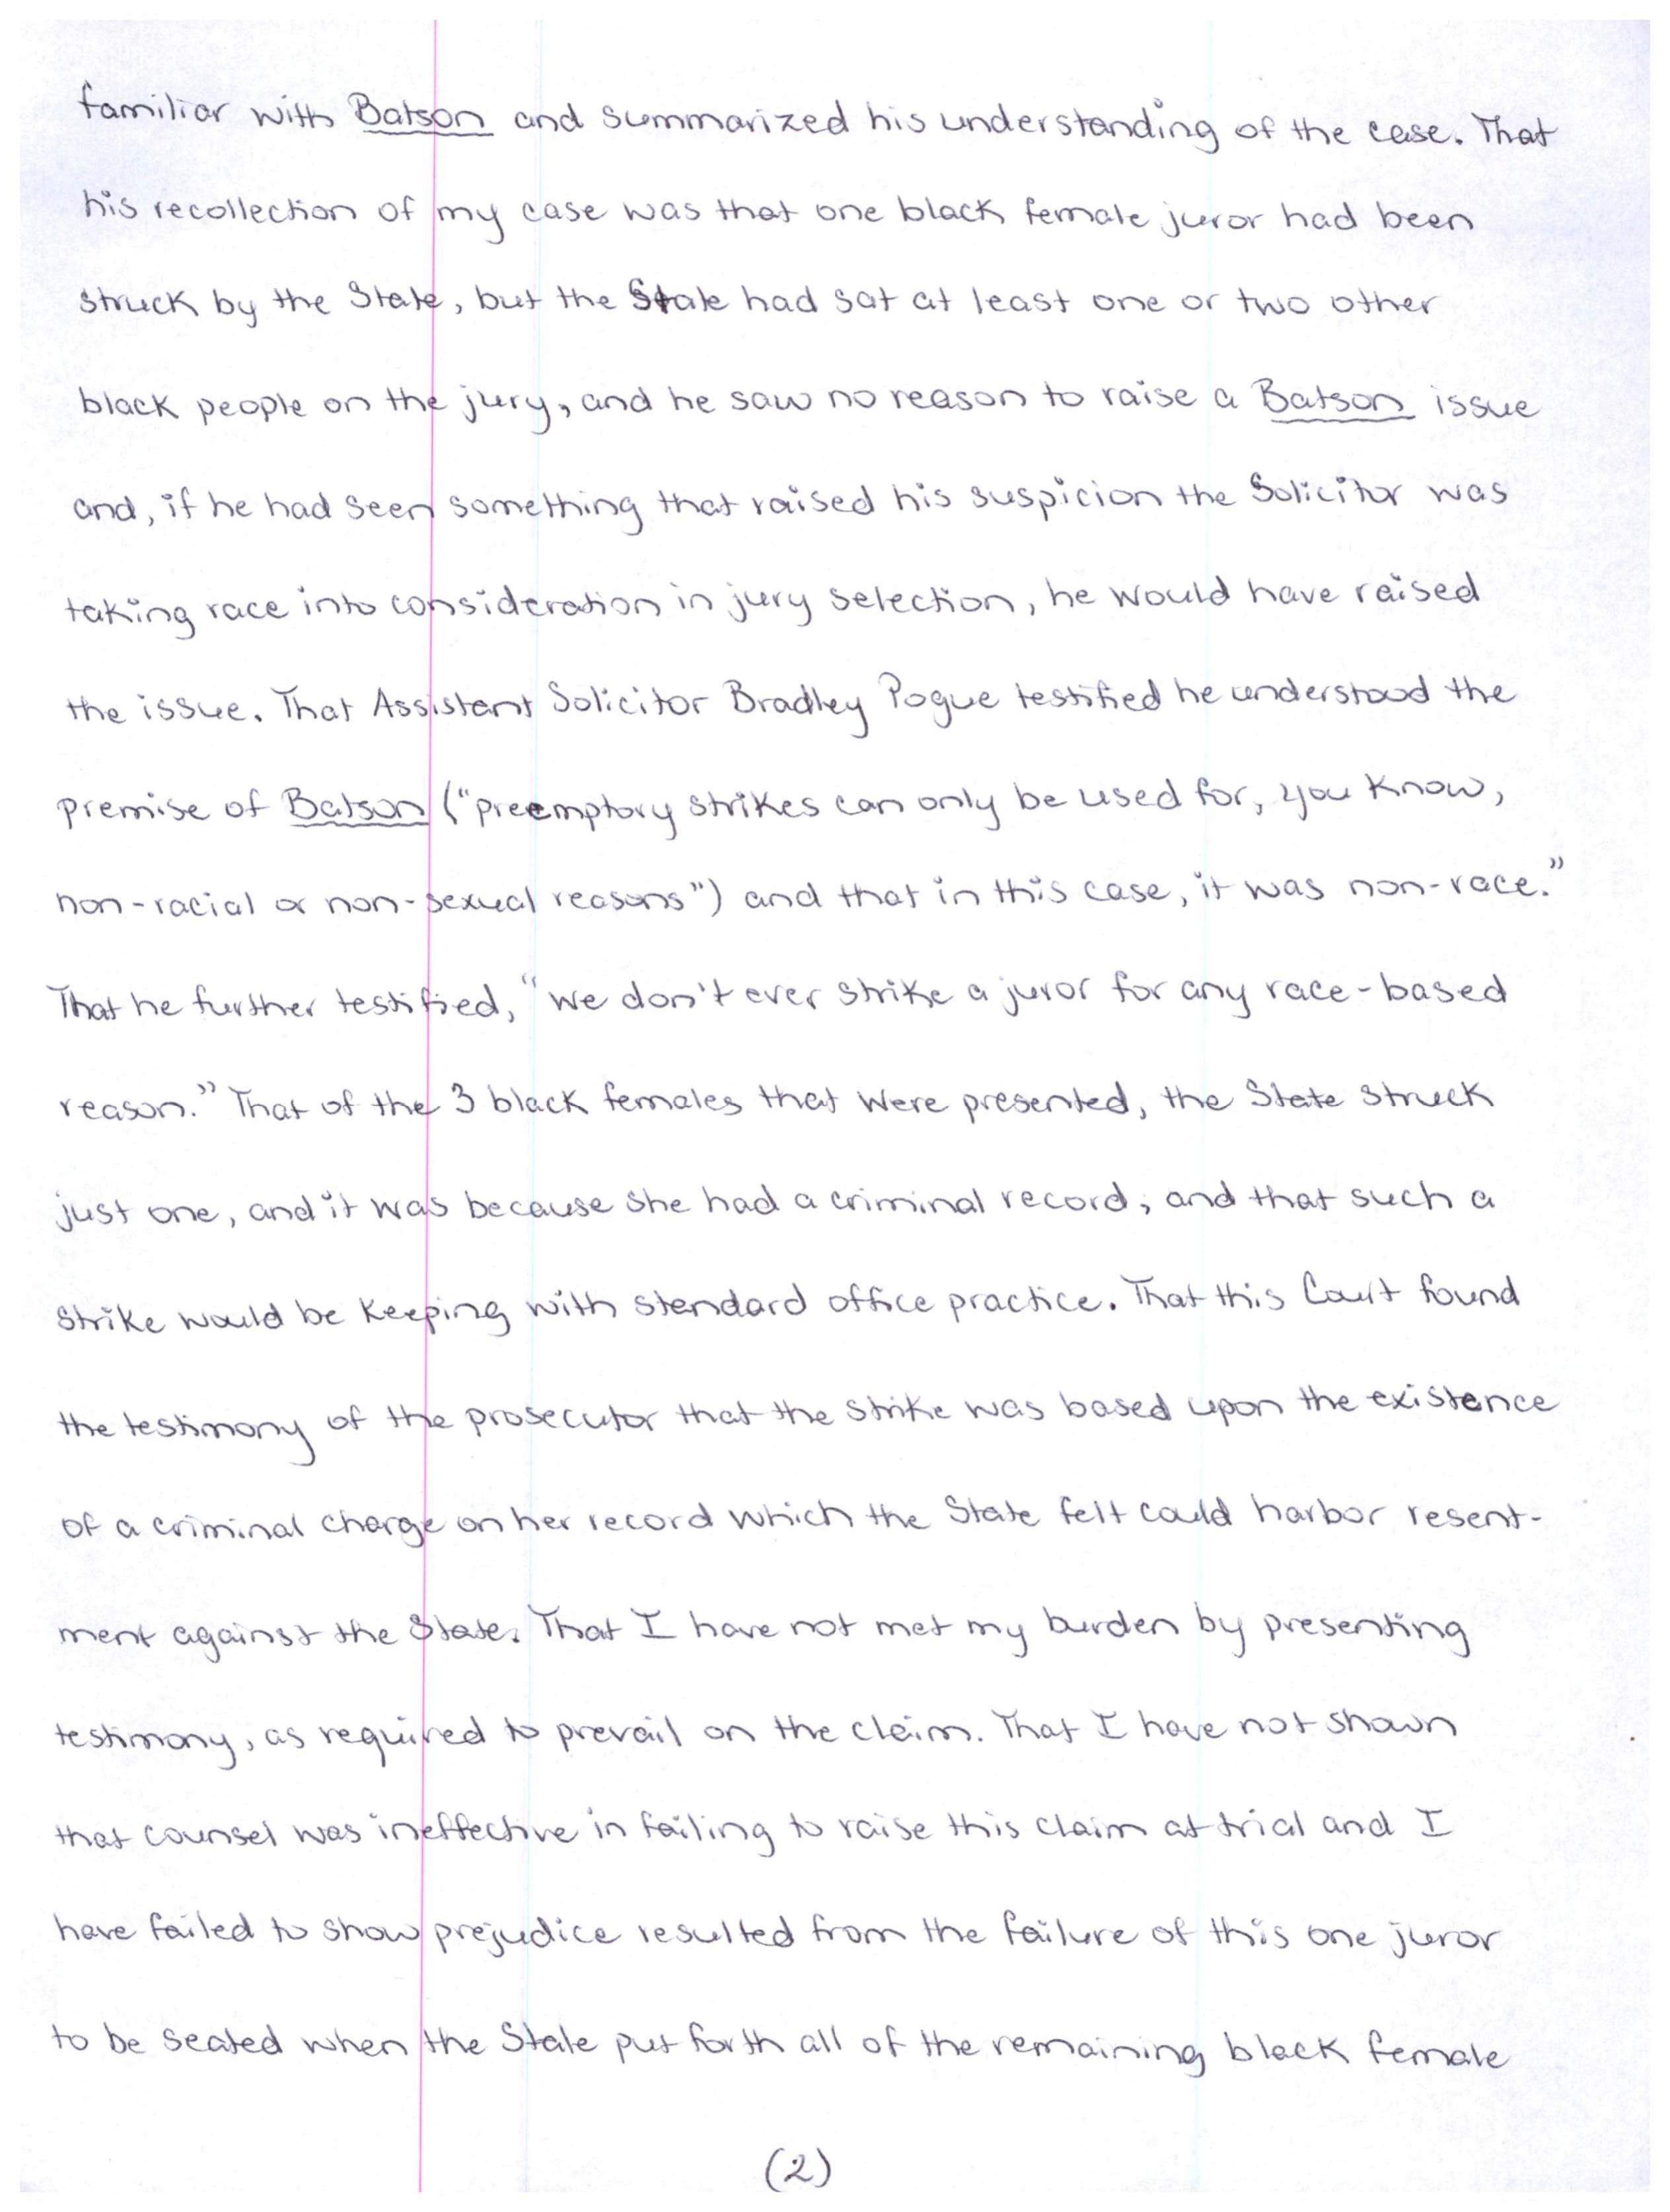 familiar with Batson and summarized his understanding of the case. That
his recollection of my case was that one black female juror had been
struck by the State, but the State had sat at least one or two other
black people on the jury, and he saw no reason to raise a Batson issue
and, if he had seen something that raised his suspicion the Solicitor was
taking race into consideration in jury selection, he would have raised
the issue. That Assistant Solicitor Bradley Pogue testified he understood the
premise of Batson ("preemptory strikes can only be used for, you know,
non-racial or non-sexual reasons") and that in this case, it was non-race."
That he further testified, "we don't ever strike a juror for any race-based
reason." That of the 3 black females that were presented, the State struck
just one, and it was because she had a criminal record, and that such a
strike would be keeping with standard office practice. That this Court found
the testimony of the prosecutor that the strike was based upon the existence
of a criminal charge on her record which the State felt could harbor resent-
ment against the State. That I have not met my burden by presenting
testimony, as required to prevail on the claim. That I have not shown
that counsel was ineffective in failing to raise this claim at trial and I
have failed to show prejudice resulted from the failure of this one juror
to be seated when the State put forth all of the remaining black female
(2)